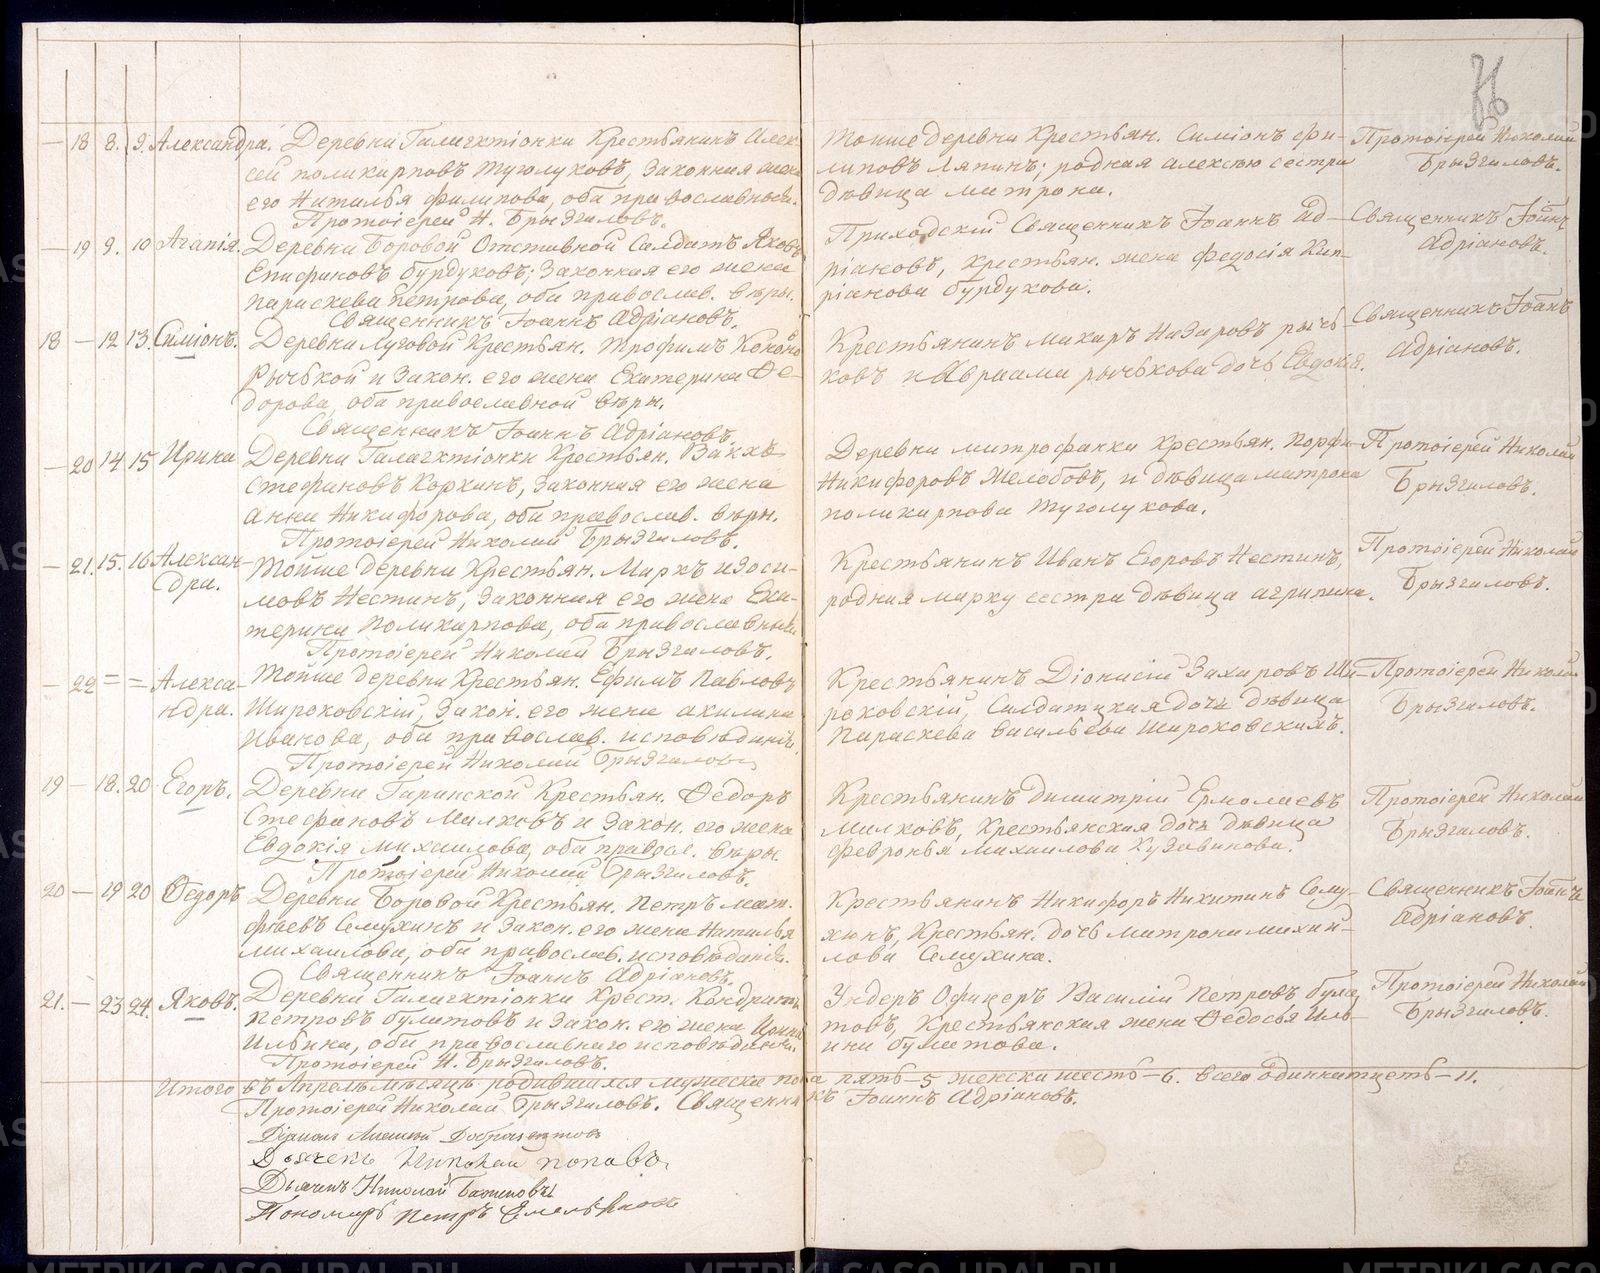 — 18 8. 9. Александра. Деревни Галактіонки Крестьянинъ Алек-
сей поликарповъ Туголуковъ, Законная жена
его Наталья филипова, оба православной.
Протоіерей Н. Брызгаловъ.
— 19 9. 10 Агапія. Деревни Боровой Отставной Салдатъ Яковъ
Епифановъ бурдуковъ; Законная его жена
параскева Петрова, оба православ. веры.
Священникъ Іоаннъ Адріановъ.
18 — 12 13. Симіонъ. Деревни Луговой Крестьян. трофимъ
Рычковой и Закон. его жена Екатерина Ѳе-
дорова, оба православной веры.
Священникъ Іоаннъ Адріановъ.
— 20 14 15 Ирина Деревни Галактіонки Крестьян.
Стефановъ Корхинъ, Законная его жена
анна Никифорова, оба православ. веры.
Протоіерей Николай Брызгаловъ.
— 21. 15. 16 Алексан-
дра. Тойже деревни Крестьян. Маркъ изоси-
мовъ Нестинъ, Законная его жена Ека-
терина Поликарпова, оба православныи
Протоіерей Николай Брызгаловъ.
— 22 = = Алекса-
ндра. Тойже деревни Крестьян. Ефимъ Павловъ
Широковскій, Закон. его жена акилина
Иванова, оба православ. исповеданія.
Протоіерей Николай Брызгаловъ
19 — 18. 20 Егоръ. Деревни Гаринской Крестьян. Ѳедоръ
Стефановъ Малковъ и Закон. его жена
Евдокія михаилова, оба правосл. веры.
Протоіерей Николай Брызгаловъ.
20 — 19 20 Ѳедоръ Деревни Боровой Крестьян. Петръ мат-
фѣевъ Семухинъ и Закон. его жена Наталья
михаилова, оба православ. исповѣданія.
Священникъ Іоаннъ Адріановъ.
21. — 23 24. Яковъ. Деревни Галактіонки Крест. Кондратій
Петровъ булатовъ и Закон. его жена Ирина
Ильина, оба православнаго исповѣданія.
Протоіерей Н. Брызгаловъ.
Итого въ Апрелѣ мѣсяцѣ родившихся мужеска пола пять — 5 женска шесть — 6. всего одиннатцеть — 11.
Протоіерей Николай Брызгаловъ. Священникъ Іоаннъ Адріановъ.
Діаконъ Алексей
Дьячекъ Николай поповъ.
Дьячекъ Николай
Пономарь Петръ Емельяновъ
Тойже деревни Крестьян. Симіонъ фи-
липовъ Ляпинъ; родная алексѣю сестра
дѣвица матрона.
Протоіерей Николай
Брызгаловъ.
Приходскій Священникъ Іоаннъ Ад-
ріановъ, Крестьян. жена федосія Кип-
ріанова бурдукова.
Священникъ Іоаннъ
Адріановъ.
Крестьянинъ макаръ Назаровъ рыч-
ковъ и Авраама рычькова дочь Евдокія.
Священникъ Іоаннъ
Адріановъ.
Деревни митрофанки Крестьян. Порфи-
Никифоровъ Желобовъ, и дѣвица матрона
поликарпова Туголукова.
Протоіерей Николай
Брызгаловъ.
Крестьянинъ Иванъ Егоровъ Нестинъ,
родная марку сестра дѣвица агрипина.
Протоіерей Николай
Брызгаловъ.
Крестьянинъ Діонисій Захаровъ Ши-
роковскій, Салдатцкая дочь дѣвица
Параскева васильева Широковскихъ.
Протоіерей Николай
Брызгаловъ.
Крестьянинъ димитрій Ермолаевъ
Малковъ, Крестьянская дочь дѣвица
февронья михаилова Кузовникова.
Протоіерей Николай
Брызгаловъ.
Крестьянинъ Никифоръ Никитинъ Сему-
хинъ, Крестьян. дочь матрона михай-
лова Семухина.
Священникъ Іоаннъ
Адріановъ.
Ундеръ Офицеръ Василій Петровъ була-
товъ, Крестьянская жена Ѳедосья Иль-
ина булатова.
Протоіерей Николай
Брызгаловъ.
METRIKI.GASO-URAL.RU